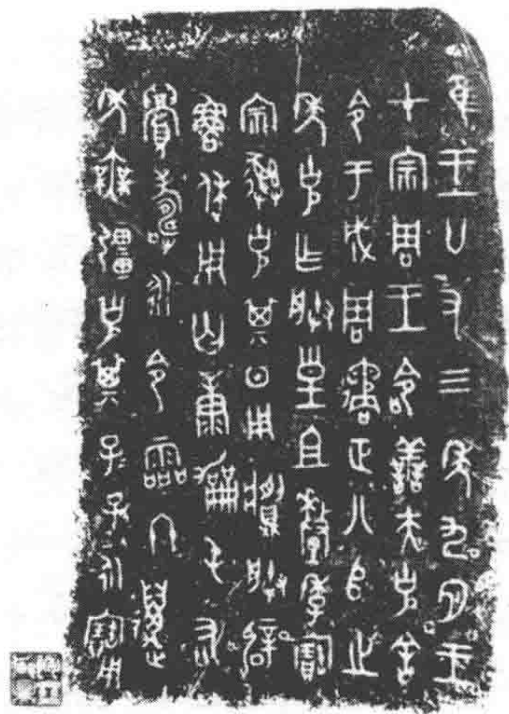 隹王廿又三年九月王
才宗周王命善夫克舍
令于成周遹正八𠂤之
年克乍朕皇且釐季寶
宗彝克其日用朕辟
魯休用匄康屯右
眉壽永令霝冬萬
年無疆克其子子孫孫永寶用